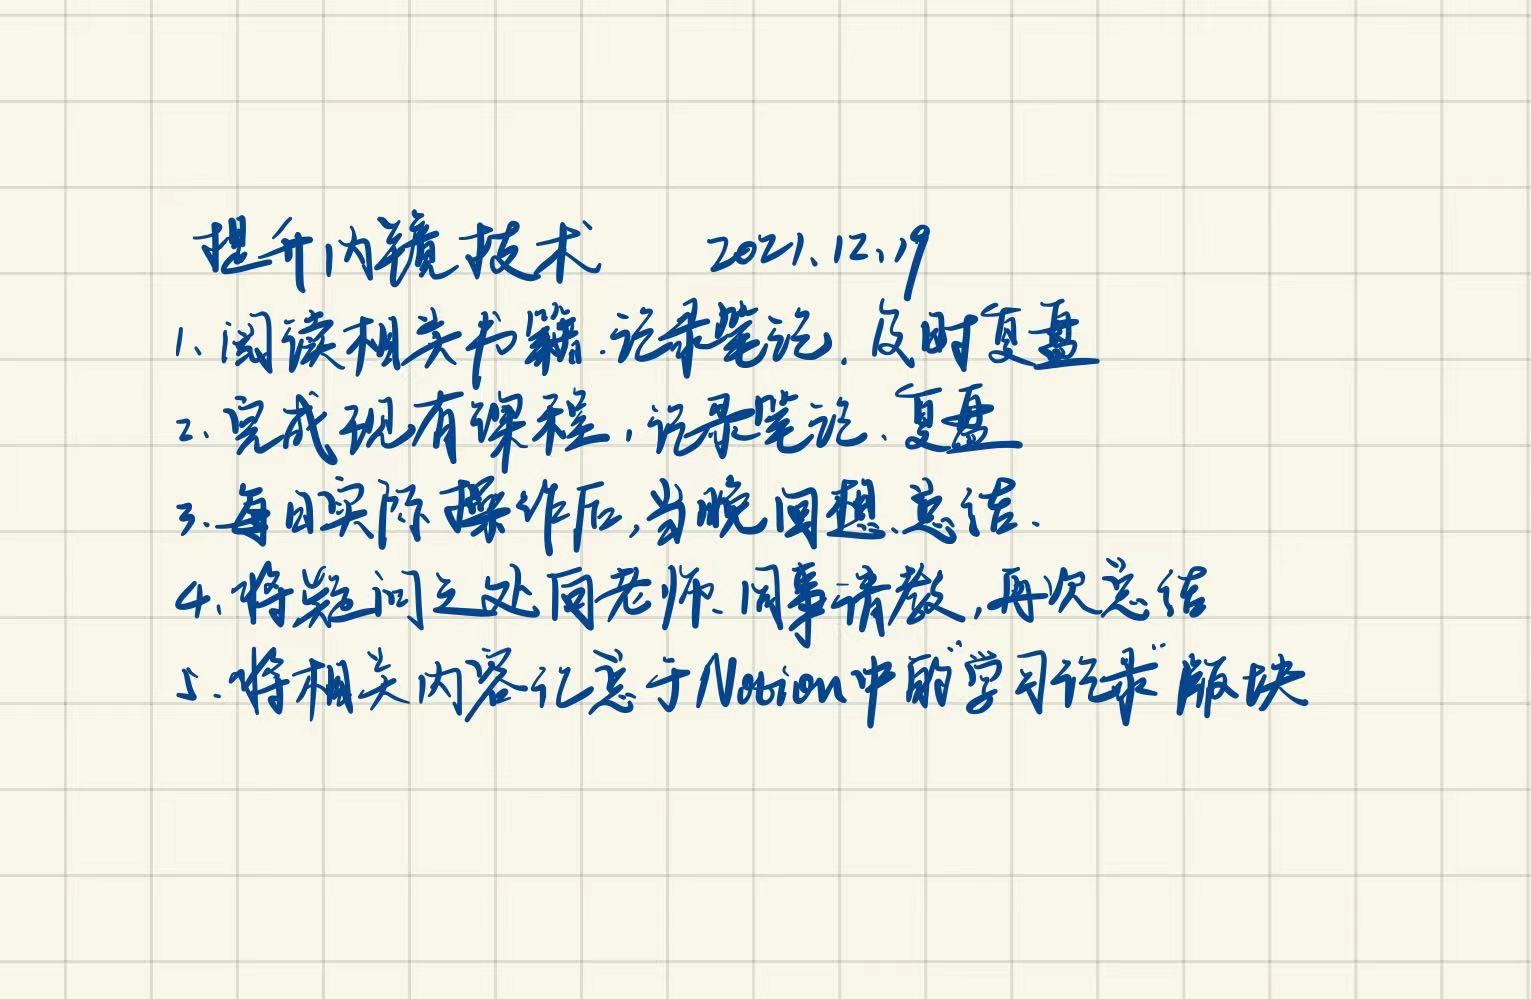 提升内镜技术 2021.12.19
1、阅读相关书籍.记录笔记.及时复盘
2.完成现有课程,记录笔记、复盘
3.每日实际操作后,当晚回想、总结.
4、将疑问之处向老师、同事请教,再次总结
5.将相关内容汇总于Notion中的"学习记录"版块